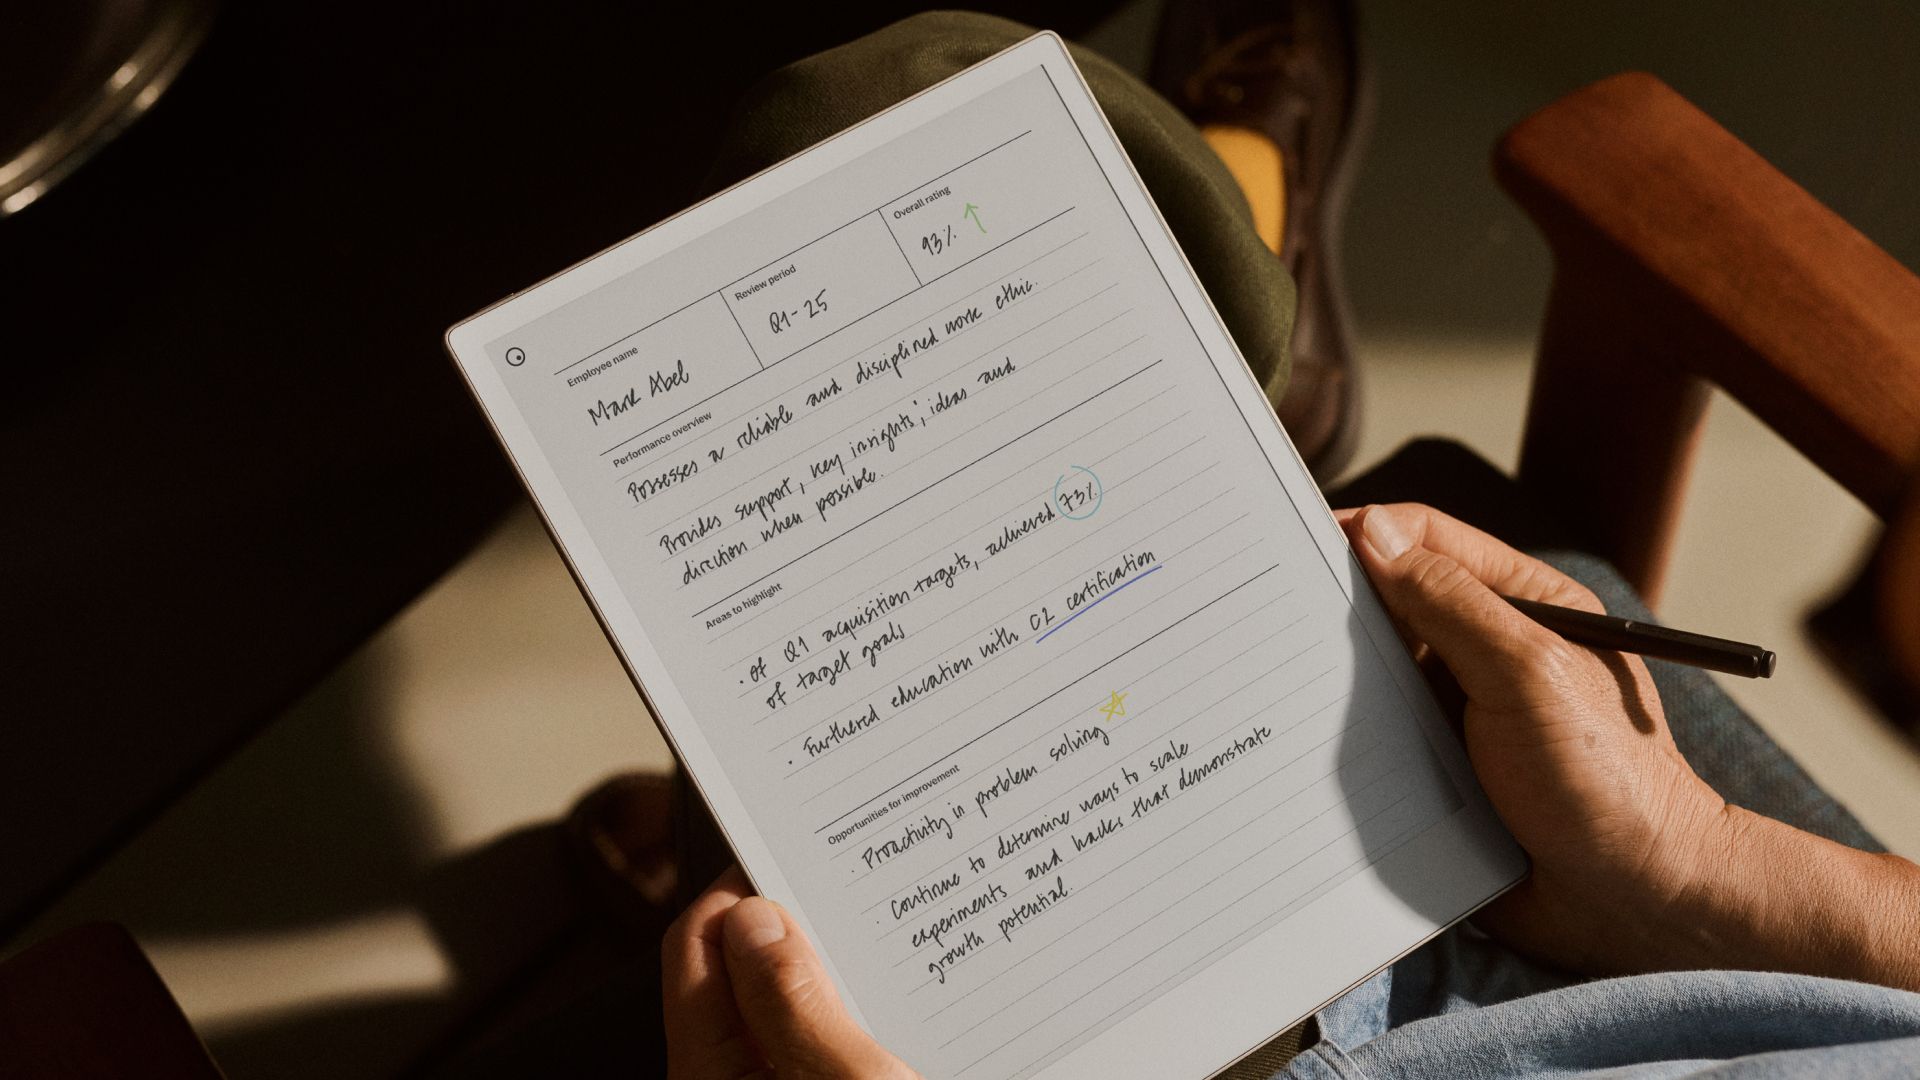 Employee name
Mark Abel
Review period
Q1-25
Overall rating
93% ↑
Performance overview
Possesses a reliable and disciplined work ethic.
Provides support, key insights', ideas and
direction when possible.
Areas to highlight
· Of Q1 acquisition targets, achieved 73%
of target goals
· Furthered education with C2 certification
Opportunities for improvement
· Proactivity in problem solving
· Continue to determine ways to scale
experiments and hacks that demonstrate
growth potential.